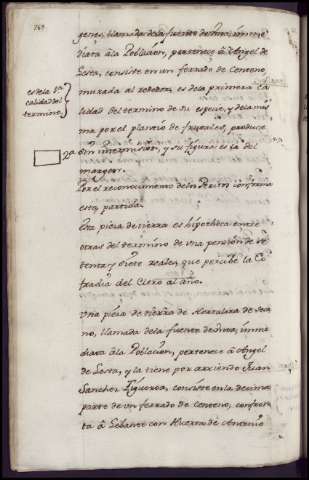 genes, llamada de la fuente de Duea, inme
diata á la Poblacion, pertenece á Angel de
Sesta, consiste en un ferrado de Centeno,
murada al rededor, es de la primera ca
lidad del termino de su especie, y de la mis
ma por el plantio de frutales, produce
sin intermision, y su figura es la del
margen.
es de la 1ª
calidad del
termino
2ª
Por el reconocimiento de los Peritos confirma
esta partida.
Esta pieza de tierra es hipotheca entre
otras del termino de una pension de se
tenta y siete reales que percibe la Co
fradia del Cirio al año.
Una pieza de tierra de Hortaliza de seca
no, llamada de la fuente de Duea, inme
diata á la Poblacion, pertenece á Angel
de Sesta, y la tiene por arriendo Juan
Sanchez Figueroa, consiste en la decima
parte de un ferrado de Centeno, confron
ta á Lebante con Huerta de Antonio